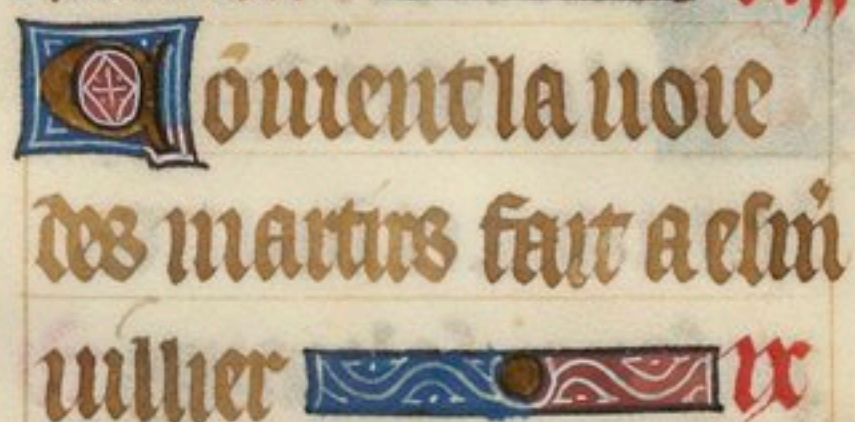 Cōment la uoie
des martirs fait a esm̾
uillier ix